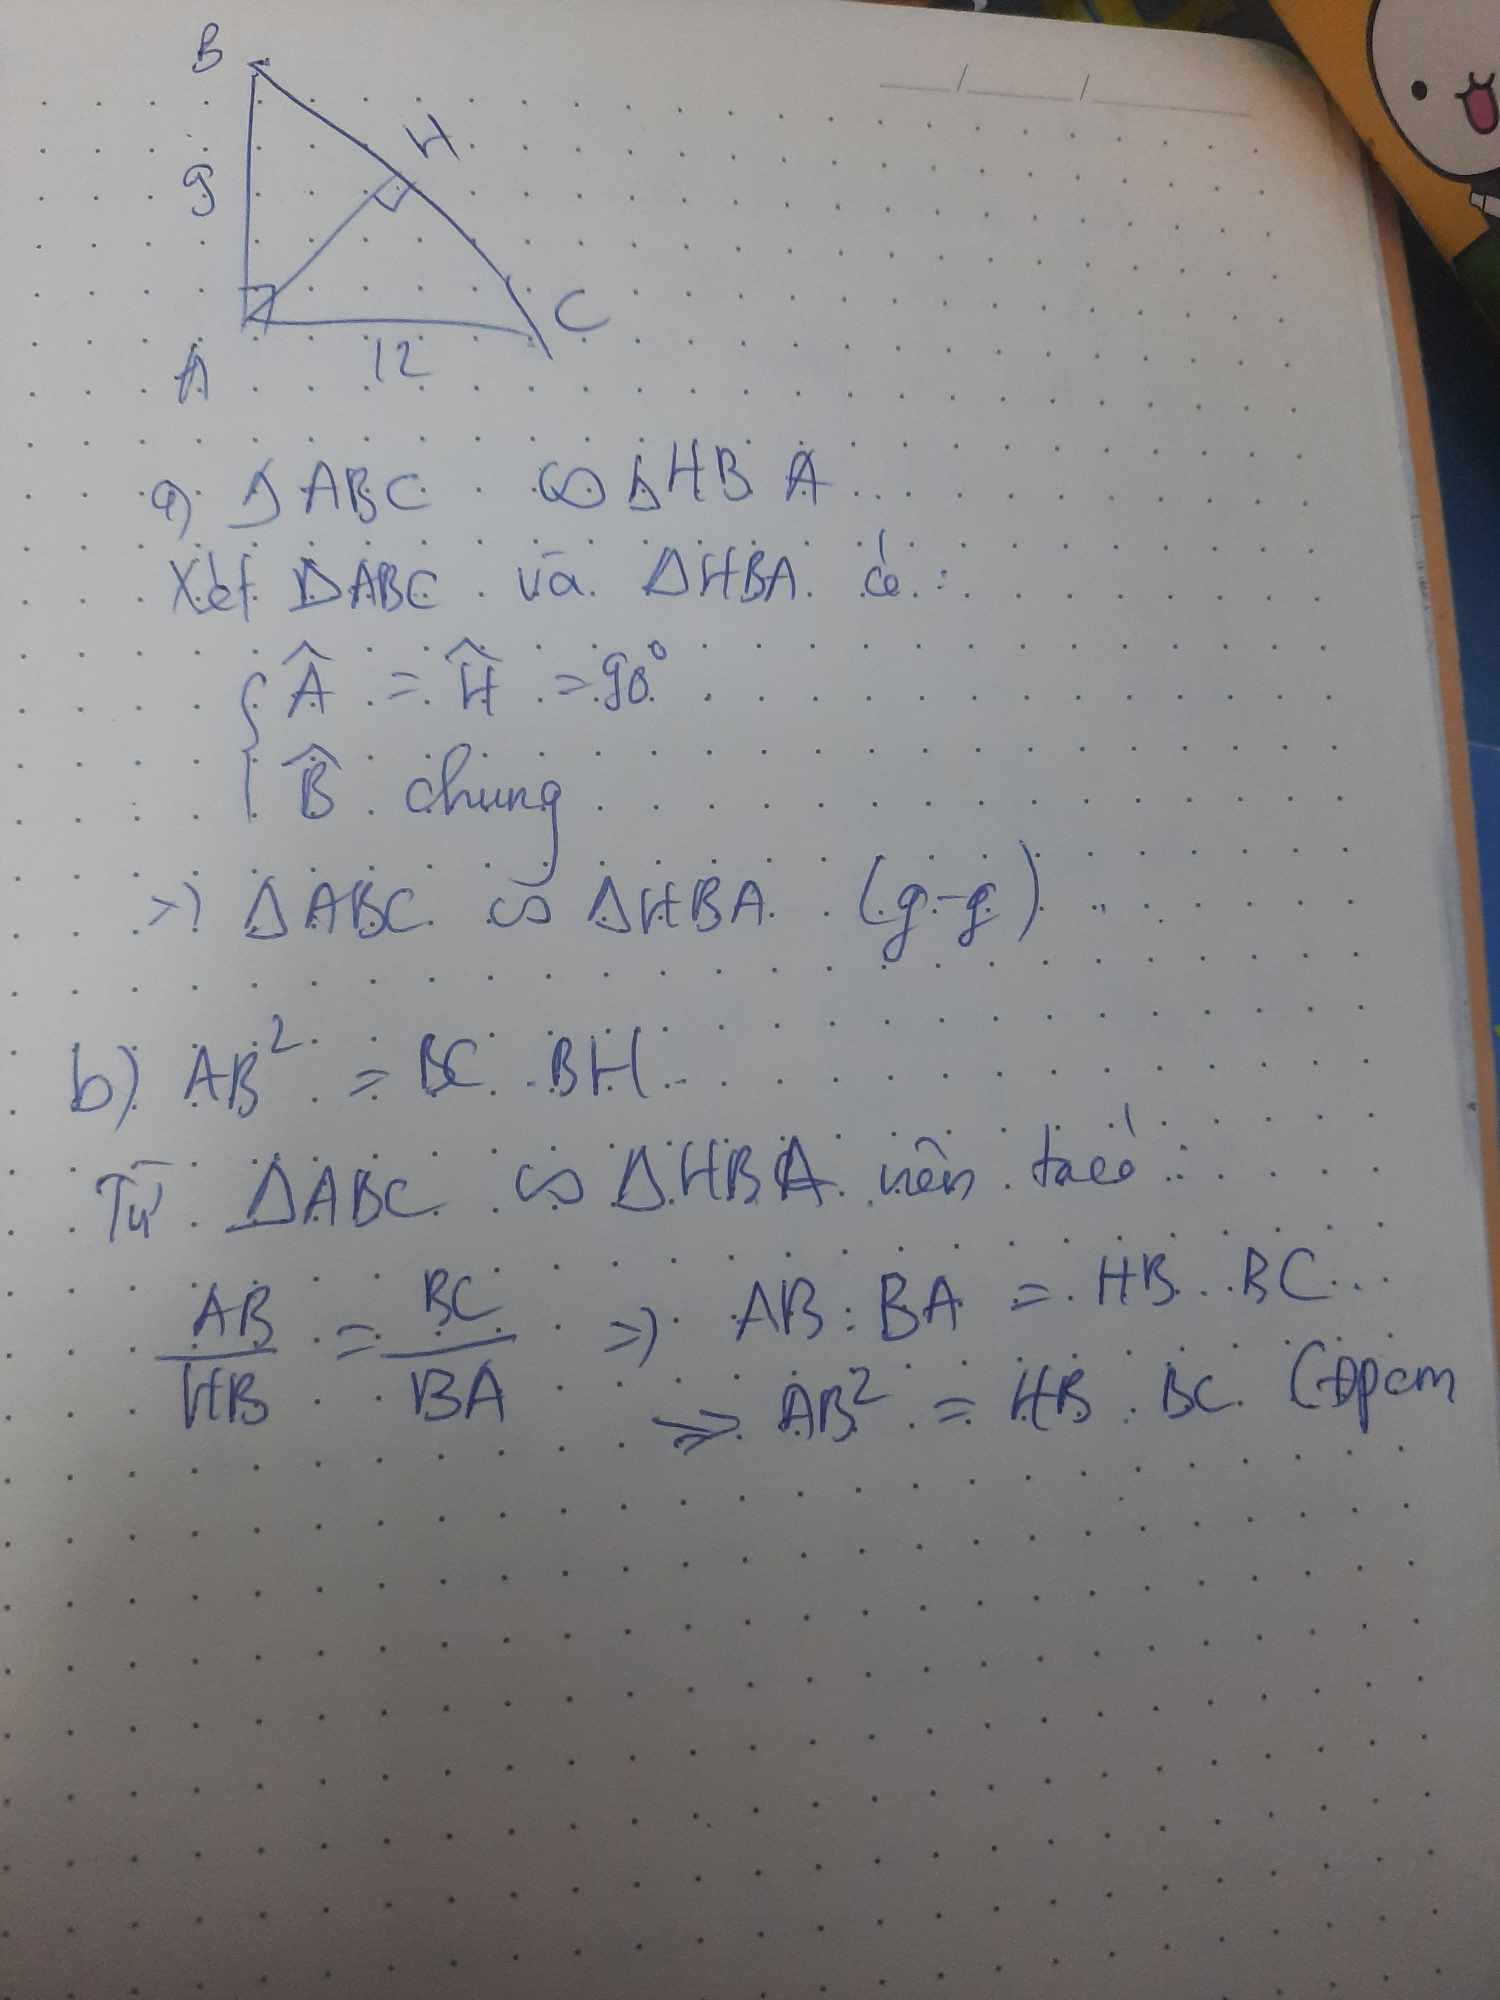 B
H
9
C
A
12
a) Δ ABC ∽ Δ HBA
Xét ΔABC và ΔHBA có :
{ Â = Ĥ = 90°
B̂ chung
=) ΔABC ∽ ΔHBA (g-g)
b) AB² = BC . BH
Từ ΔABC ∽ ΔHBA nên ta có :
AB/HB = BC/BA =) AB . BA = HB . BC
=> AB² = HB . BC (Đpcm